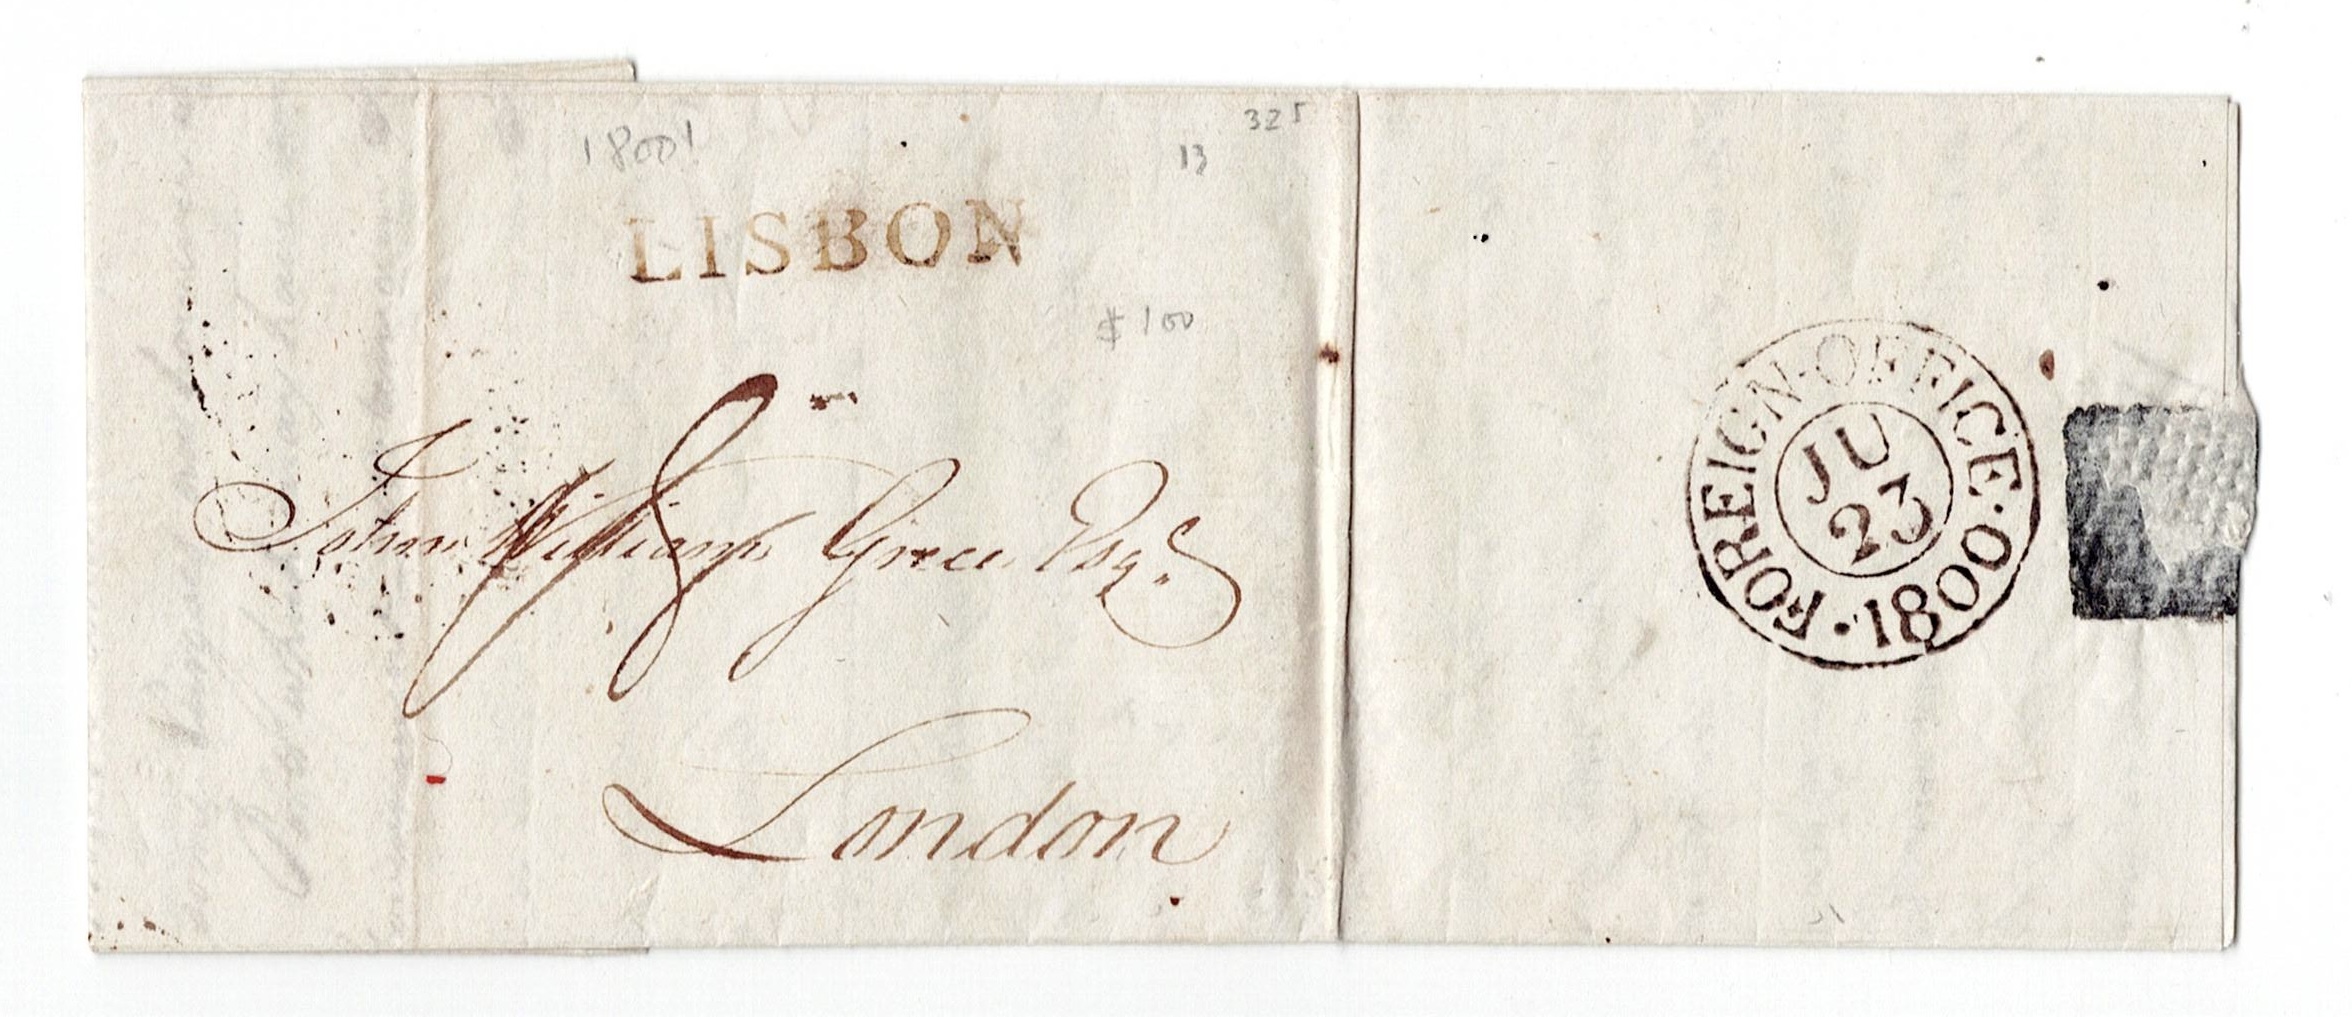 1800!
325
13
LISBON
$100
John William Grece Esqr.
London
FOREIGN·OFFICE·1800·
JU
23